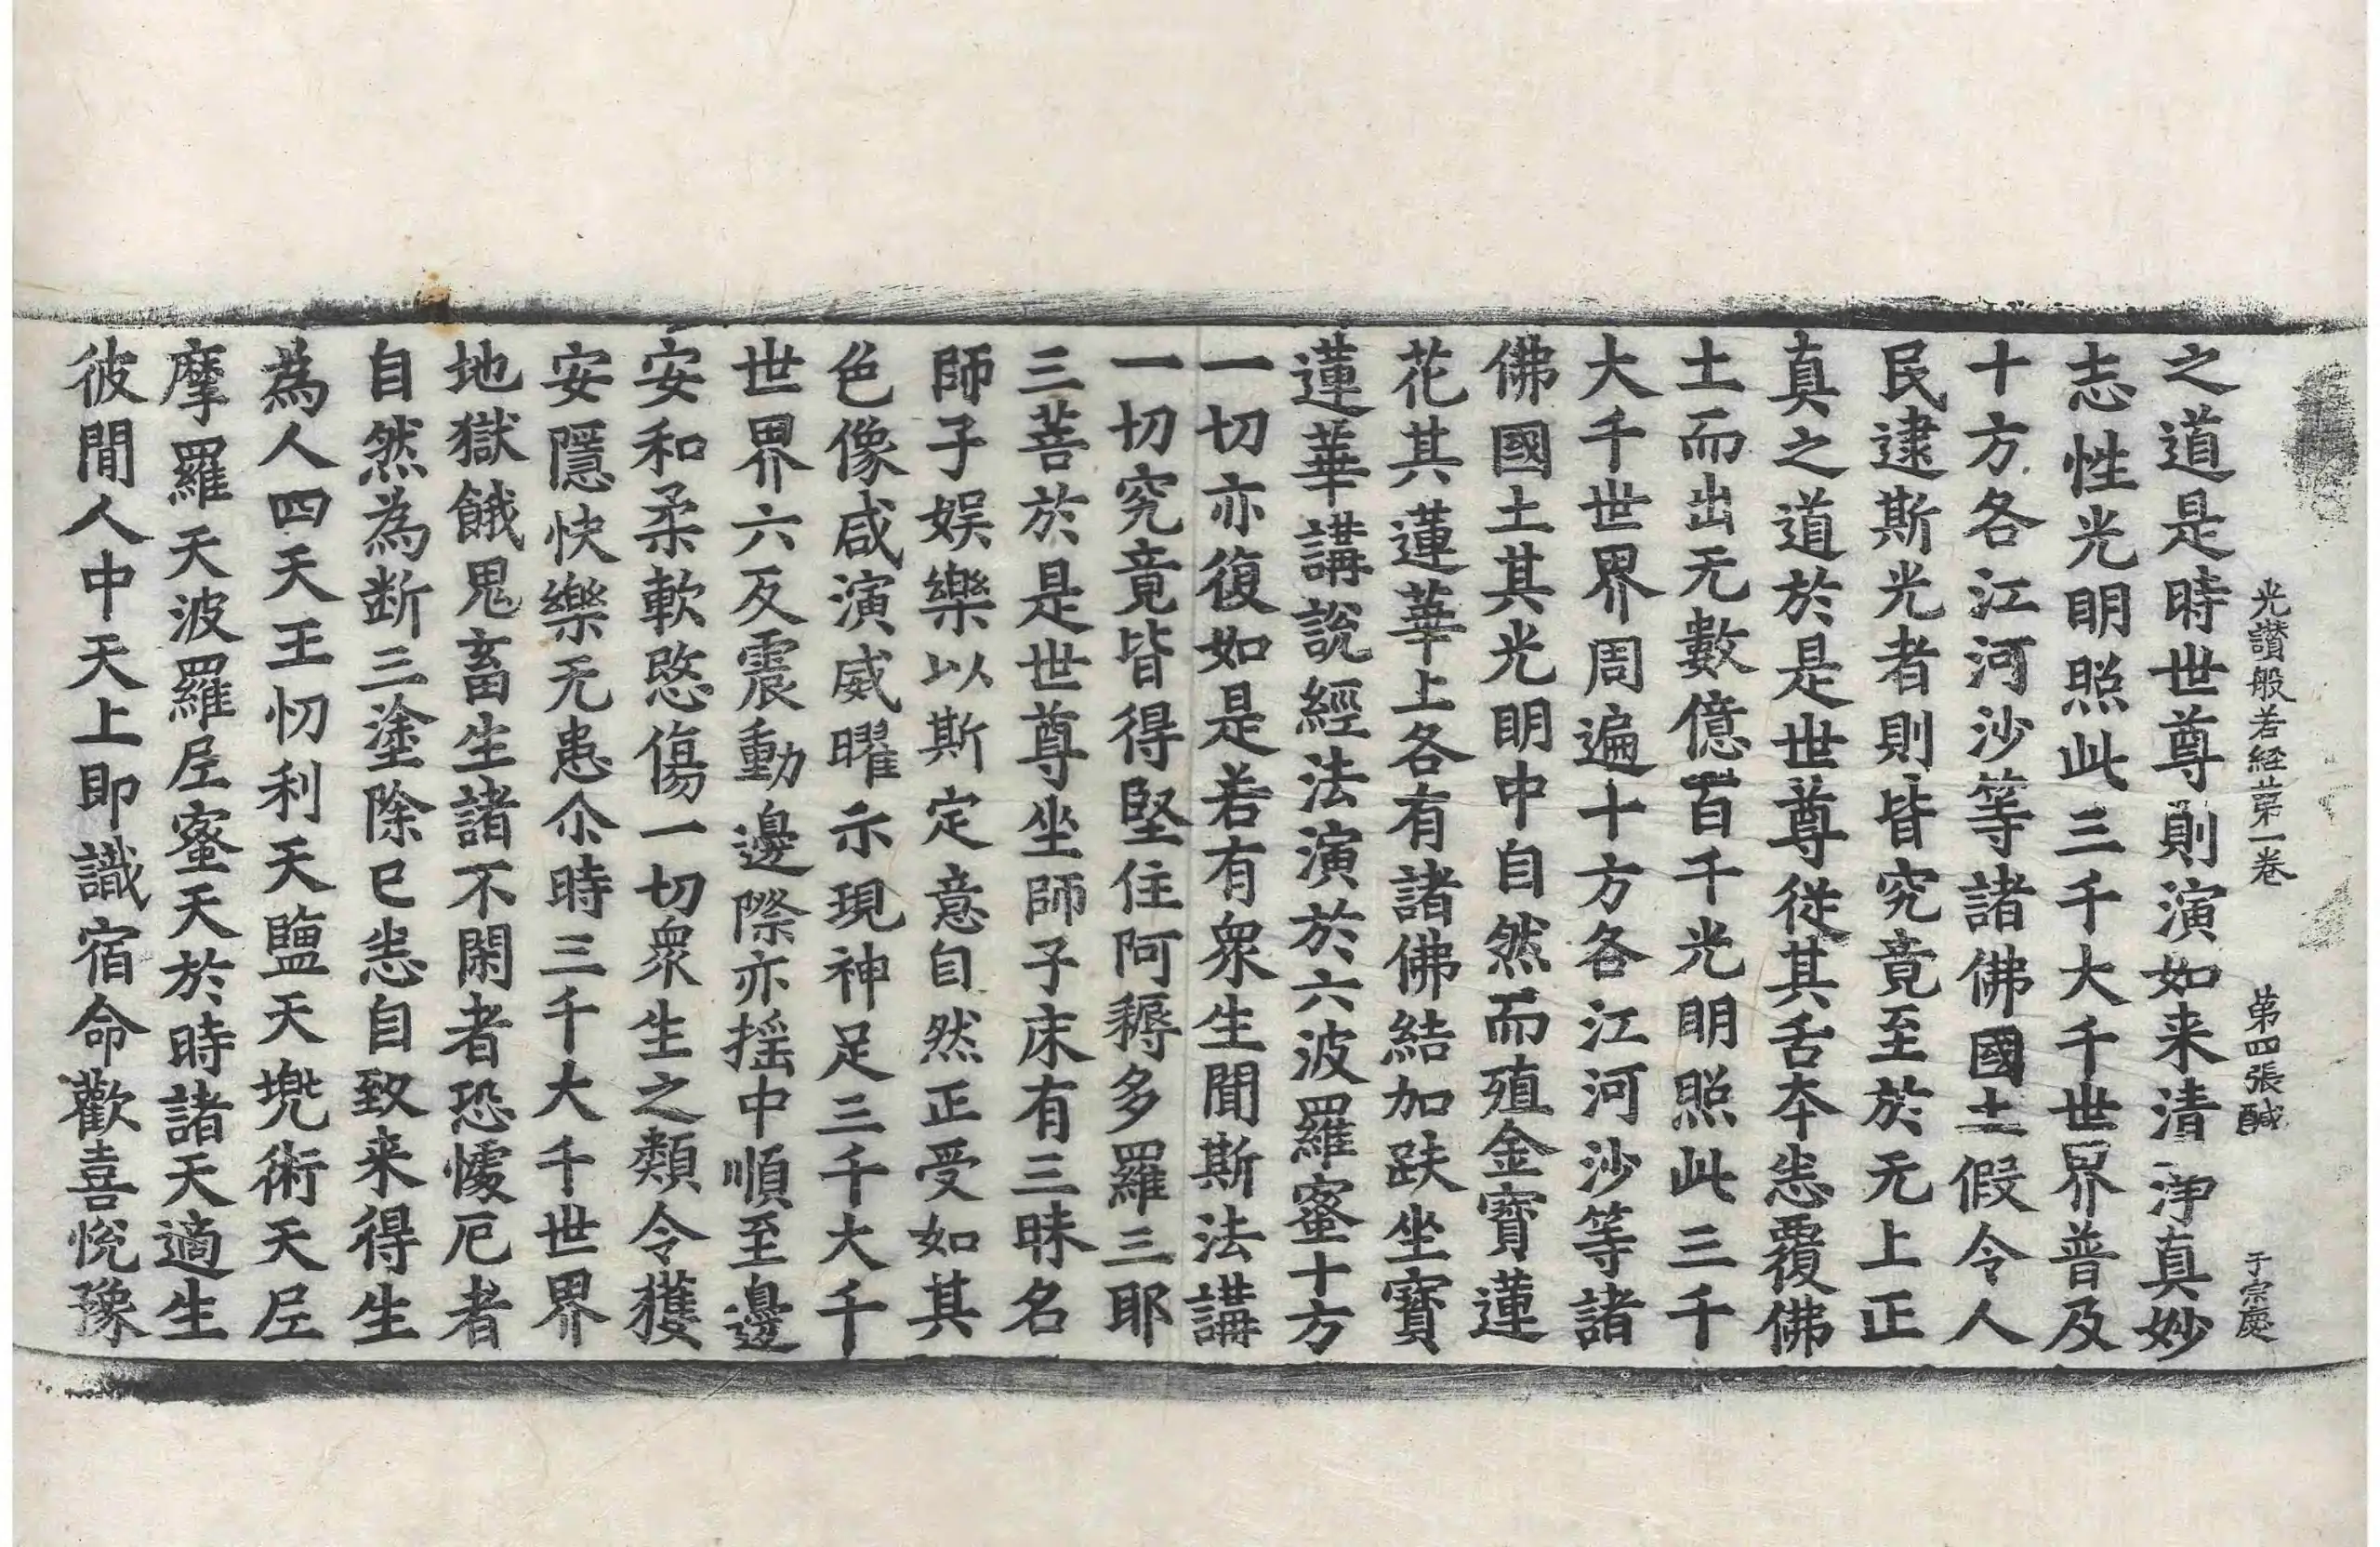 光讃般若経苐一卷 苐四張 醎 于宗慶
之道是時世尊則演如来清淨真妙
志性光明照此三千大千世界普及
十方各江河沙等諸佛國土假令人
民逮斯光者則皆究竟至於无上正
真之道於是世尊従其舌夲悉覆佛
土而出无數億百千光明照此三千
大千世界周遍十方各江河沙等諸
佛國土其光明中自然而殖金寶蓮
花其蓮華上各有諸佛結加趺坐寶
蓮華講說經法演於六波羅蜜十方
一切亦復如是若有衆生聞斯法講
一切究竟皆得堅住阿耨多羅三耶
三菩於是世尊坐師子床有三昧名
師子娱樂以斯定意自然正受如其
色像咸演威曜示現神足三千大千
世界六反震動邊際亦揺中順至邊
安和柔軟愍傷一切衆生之類令獲
安隱快樂无患尒時三千大千世界
地獄餓鬼畜生諸不閑者恐懅厄者
自然為断三塗除已悉自致来得生
為人四天王忉利天鹽天兠術天𡰱
摩羅天波羅𡰱蜜天於時諸天適生
彼閒人中天上即識宿命歡喜悅豫